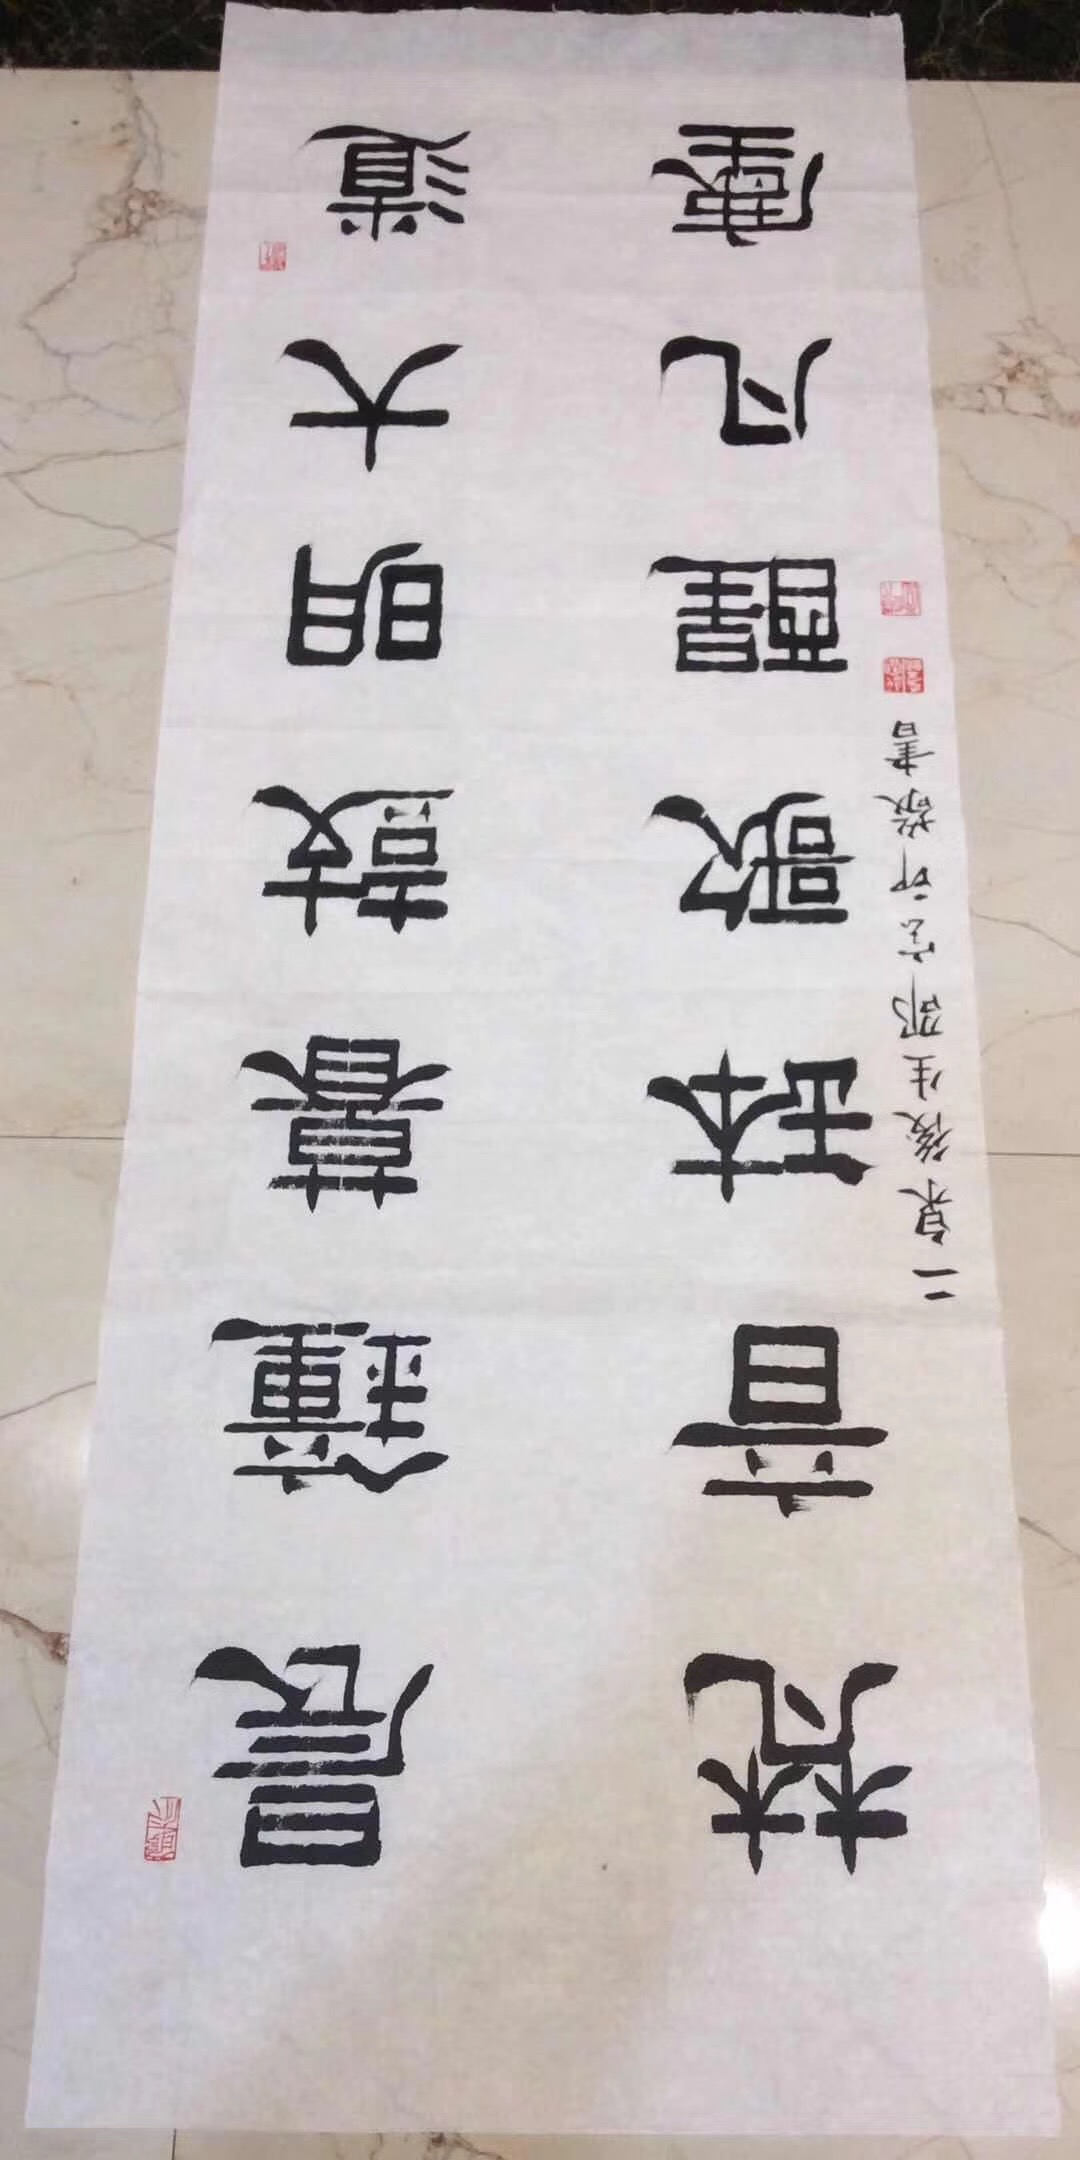 晨鐘暮鼓明大道
梵音缽歌醒凡塵
二泉後生邵 敬書